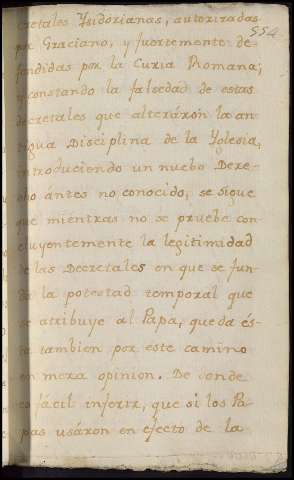 554
cretales Ysidorianas, autorizadas
por Graciano, y fuertemente de-
fendidas por la Curia Romana;
y constando la falsedad de estas
decretales que alteráron la an-
tigua Disciplina de la Yglesia,
introduciendo un nuebo Dere-
cho ántes no conocido, se sigue
que miéntras no se pruebe con-
cluyentemente la legitimidad
de las Decretales en que se fun-
da la potestad temporal que
se atribuye al Papa, queda és-
ta tambien por este camino
en mera opinion. De donde
es fácil inferir, que si los Pa-
pas usáron en efecto de la